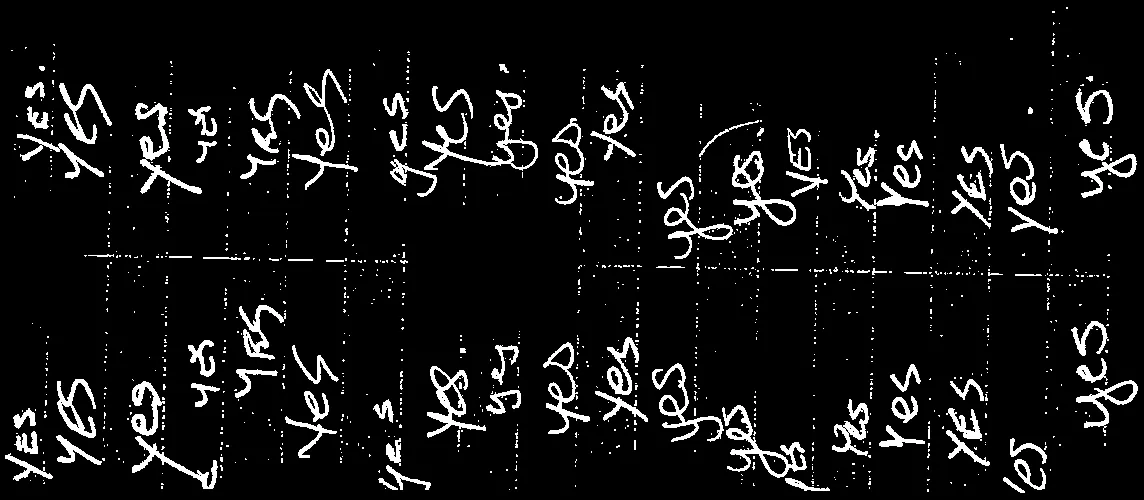 YES Yes.
YES YES
yes yes
yes yes
YES YES
Yes Yes
yes yes
Yes. Yes
yes yes.
yes yes.
Yes Yes
yes yes
yes yes.
YES YES
Yes Yes.
Yes Yes
YES YES
Yes Yes
yes yes.